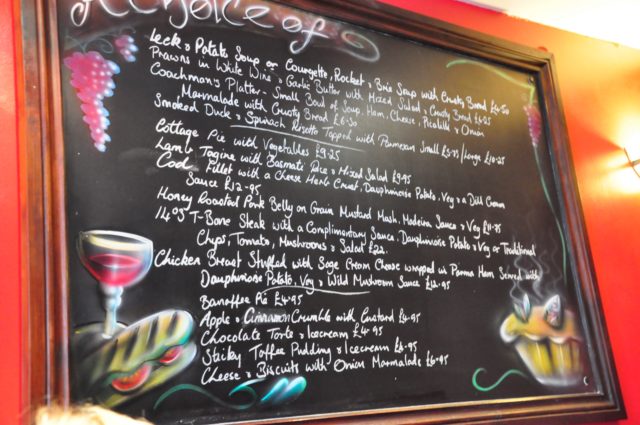 A Choice of
Leek & Potato Soup or Courgette, Rocket & Brie Soup with Crusty Bread £4.50
Prawns in White Wine & Garlic Butter with Mixed Salad & Crusty Bread £6.25
Coachmans Platter - Small Bowl of Soup, Ham, Cheese, Picalilli & Onion
Marmalade with Crusty Bread £6.50
Smoked Duck & Spinach Risotto Topped with Parmesan Small £5.75/Large £10.25
Cottage Pie with Vegetables £9.25
Lamb Tagine with Basmati Rice & Mixed Salad £9.95
Cod Fillet with a Cheese Herb Crust, Dauphinoise Potato, Veg & a Dill Cream
Sauce £12.95
Honey Roasted Pork Belly on Grain Mustard Mash, Madeira Sauce & Veg £11.95
14oz T-Bone Steak with a Complimentary Sauce, Dauphinoise Potato & Veg or Traditional
Chips, Tomato, Mushrooms & Salad £22.
Chicken Breast Stuffed with Sage Cream Cheese wrapped in Parma Ham Served with
Dauphinoise Potato, Veg & Wild Mushroom Sauce £12.95
Banoffee Pie £4.95
Apple & Cinnamon Crumble with Custard £4.95
Chocolate Torte & Icecream £4.95
Sticky Toffee Pudding & Icecream £4.95
Cheese & Biscuits with Onion Marmalade £6.95